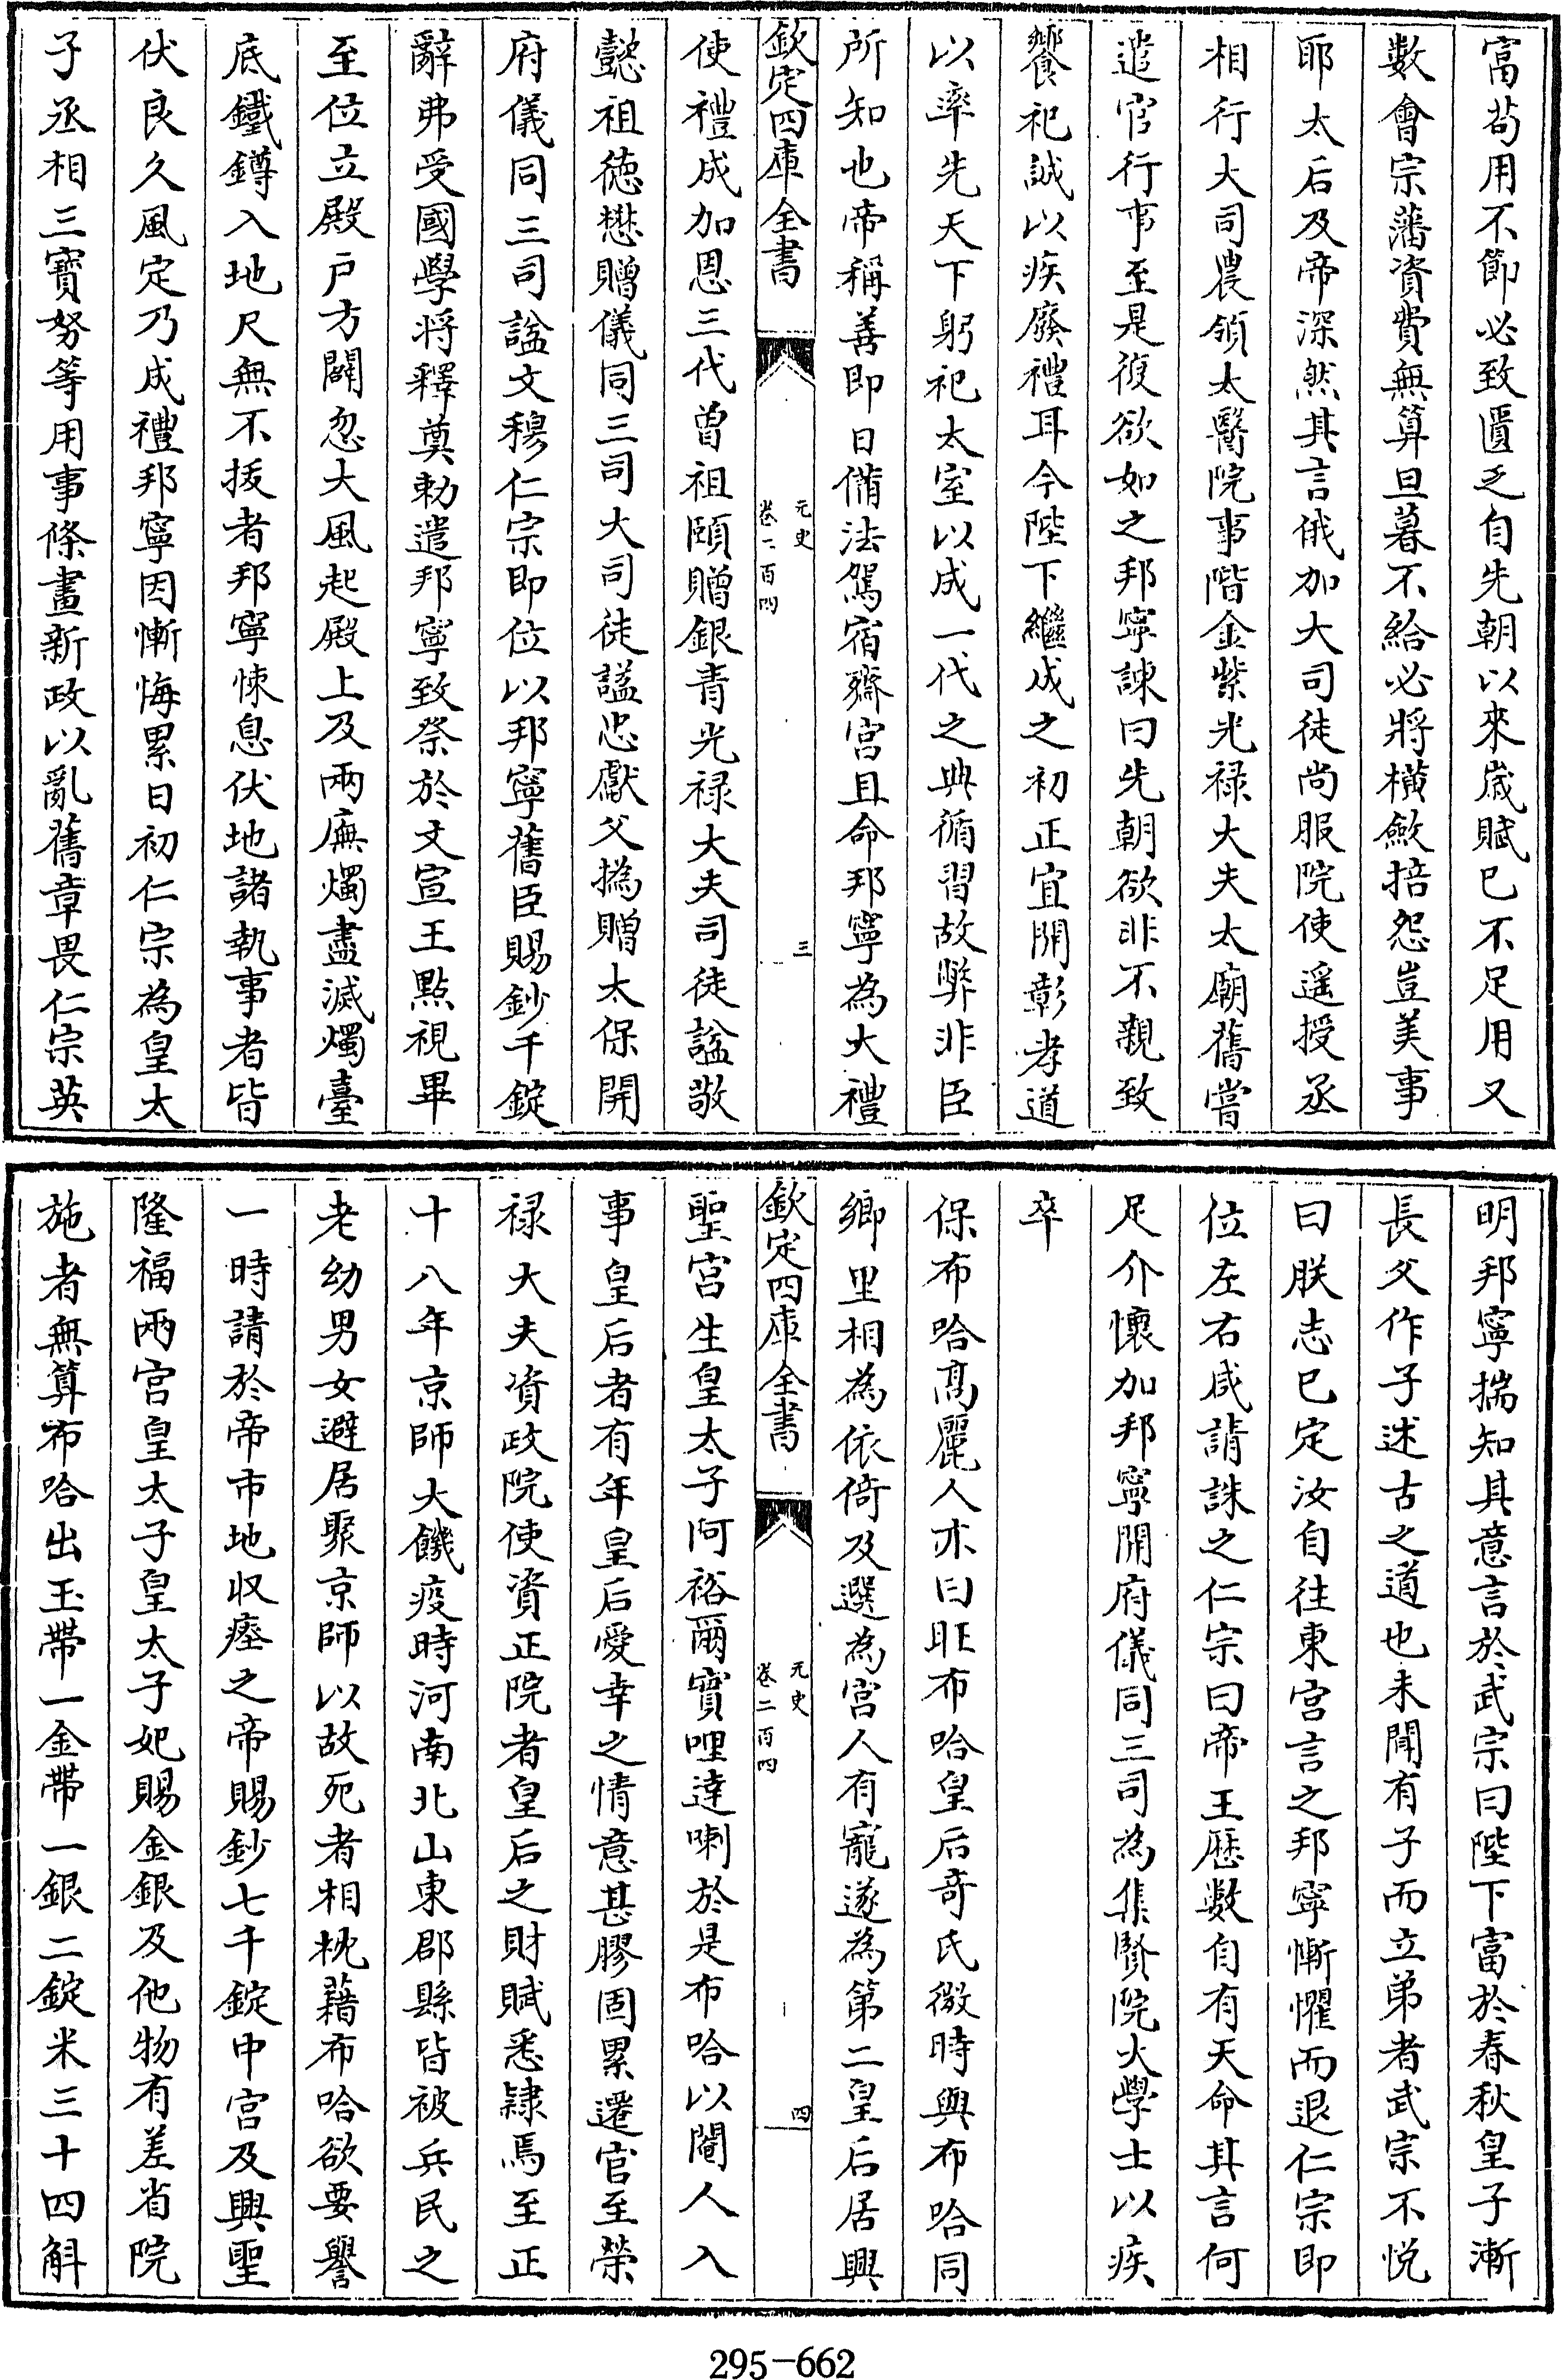 富苟用不節必致匱乏自先朝以來歲賦已不足用又
數會宗藩資費無算旦暮不給必將橫歛掊怨豈美事
耶太后及帝深然其言俄加大司徒尚服院使遥授丞
相行大司農領太醫院事階金紫光禄大夫太廟舊嘗
遣官行事至是復欲如之邦寧諫曰先朝欲非不親致
饗祀誠以疾廢禮耳今陛下繼成之初正宜開彰孝道
以率先天下躬祀太室以成一代之典循習故弊非臣
所知也帝稱善即日備法駕宿齋宫且命邦寧為大禮
欽定四庫全書
元史
卷二百四
三
使禮成加恩三代曾祖頤贈銀青光禄大夫司徒諡敬
懿祖徳懋贈儀同三司大司徒諡忠獻父撝贈太保開
府儀同三司諡文穆仁宗即位以邦寧舊臣賜鈔千錠
辭弗受國學將釋奠勅遣邦寧致祭於文宣王點視畢
至位立殿户方闢忽大風起殿上及兩廡燭盡滅燭臺
底鐵鐏入地尺無不拔者邦寧悚息伏地諸執事者皆
伏良久風定乃成禮邦寧因慚悔累日初仁宗為皇太
子丞相三寶努等用事條畫新政以亂舊章畏仁宗英
明邦寧揣知其意言於武宗曰陛下富於春秋皇子漸
長父作子述古之道也未聞有子而立弟者武宗不悦
曰朕志已定汝自往東宫言之邦寧慚懼而退仁宗即
位左右咸請誅之仁宗曰帝王歴數自有天命其言何
足介懷加邦寧開府儀同三司為集賢院大學士以疾
卒
保布哈髙麗人亦曰旺布哈皇后竒氏微時與布哈同
鄉里相為依倚及選為宫人有寵遂為第二皇后居興
欽定四庫全書
元史
卷二百四
四
聖宫生皇太子阿裕爾實哩達喇於是布哈以閹人入
事皇后者有年皇后愛幸之情意甚膠固累遷官至榮
禄大夫資政院使資正院者皇后之財賦悉隸焉至正
十八年京師大饑疫時河南北山東郡縣皆被兵民之
老幼男女避居聚京師以故死者相枕藉布哈欲要譽
一時請於帝市地収瘞之帝賜鈔七千錠中宫及興聖
隆福兩宫皇太子皇太子妃賜金銀及他物有差省院
施者無算布哈出玉帶一金帶一銀二錠米三十四斛
295-662